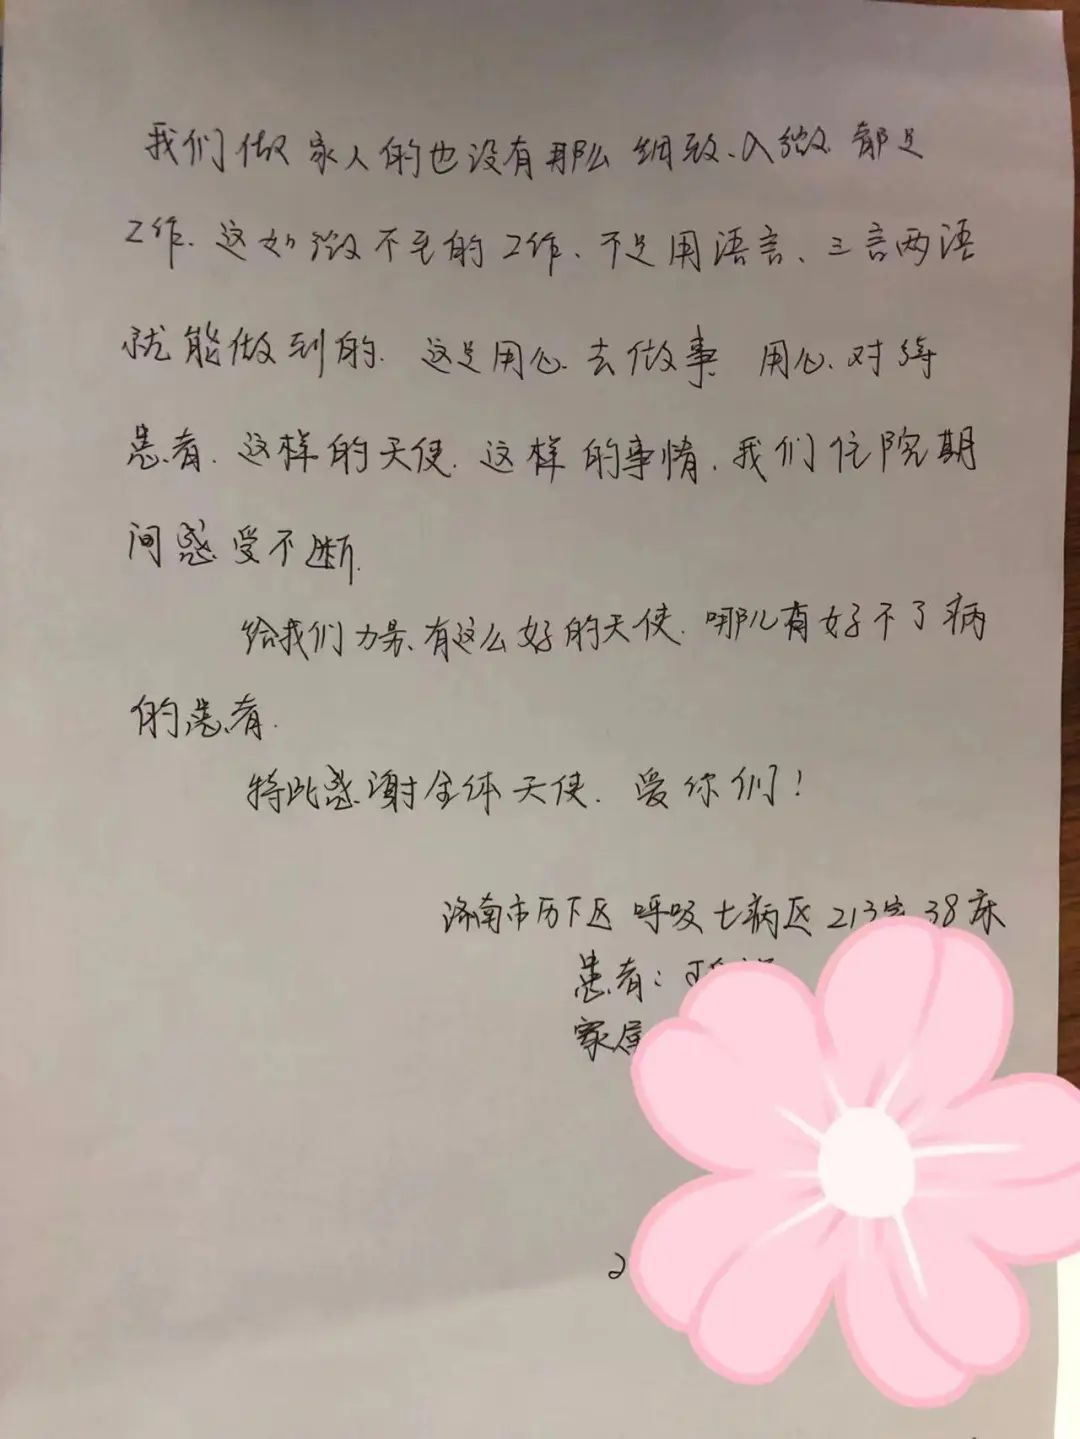 我们做家人的也没有那么细致、入微 都是
工作.这如微不至的工作、不是用语言、三言两语
就能做到的.这是用心去做事 用心对待
患者.这样的天使.这样的事情.我们住院期
间感受不断.
给我们力量、有这么好的天使.哪儿有好不了病
的患者.
特此感谢全体天使.爱你们!
济南市历下区 呼吸七病区213室38床
患者:
家属
2